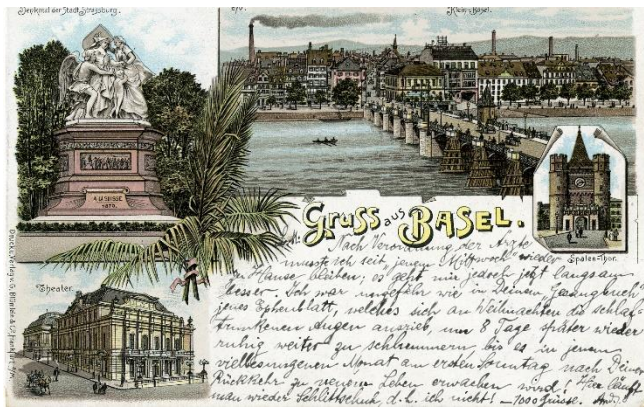 Denkmal der Stadt Strassburg.
Klein-Basel.
A LA SUISSE
1870.
Gruss aus BASEL.
Spalen-Thor.
Theater.
Nach Verordnung der Ärzte
musste ich seit jenem "Mittwoch" wieder
zu Hause bleiben; es geht mir jedoch jetzt langsam
besser. Ich war ungefähr wie in Deinem Gesangbuch
jenes Epheublatt, welches sich an Weihnachten die schlaf-
trunkenen Augen ausrieb, um 8 Tage später wieder
ruhig weiter zu schlummern bis es in jenem
vielbesungenen Monat am ersten Sonntag nach Deiner
Rückkehr zu neuem Leben erwachen wird! Hier läuft
man wieder Schlittschuh, d. h. ich nicht! – 1000 Grüsse.